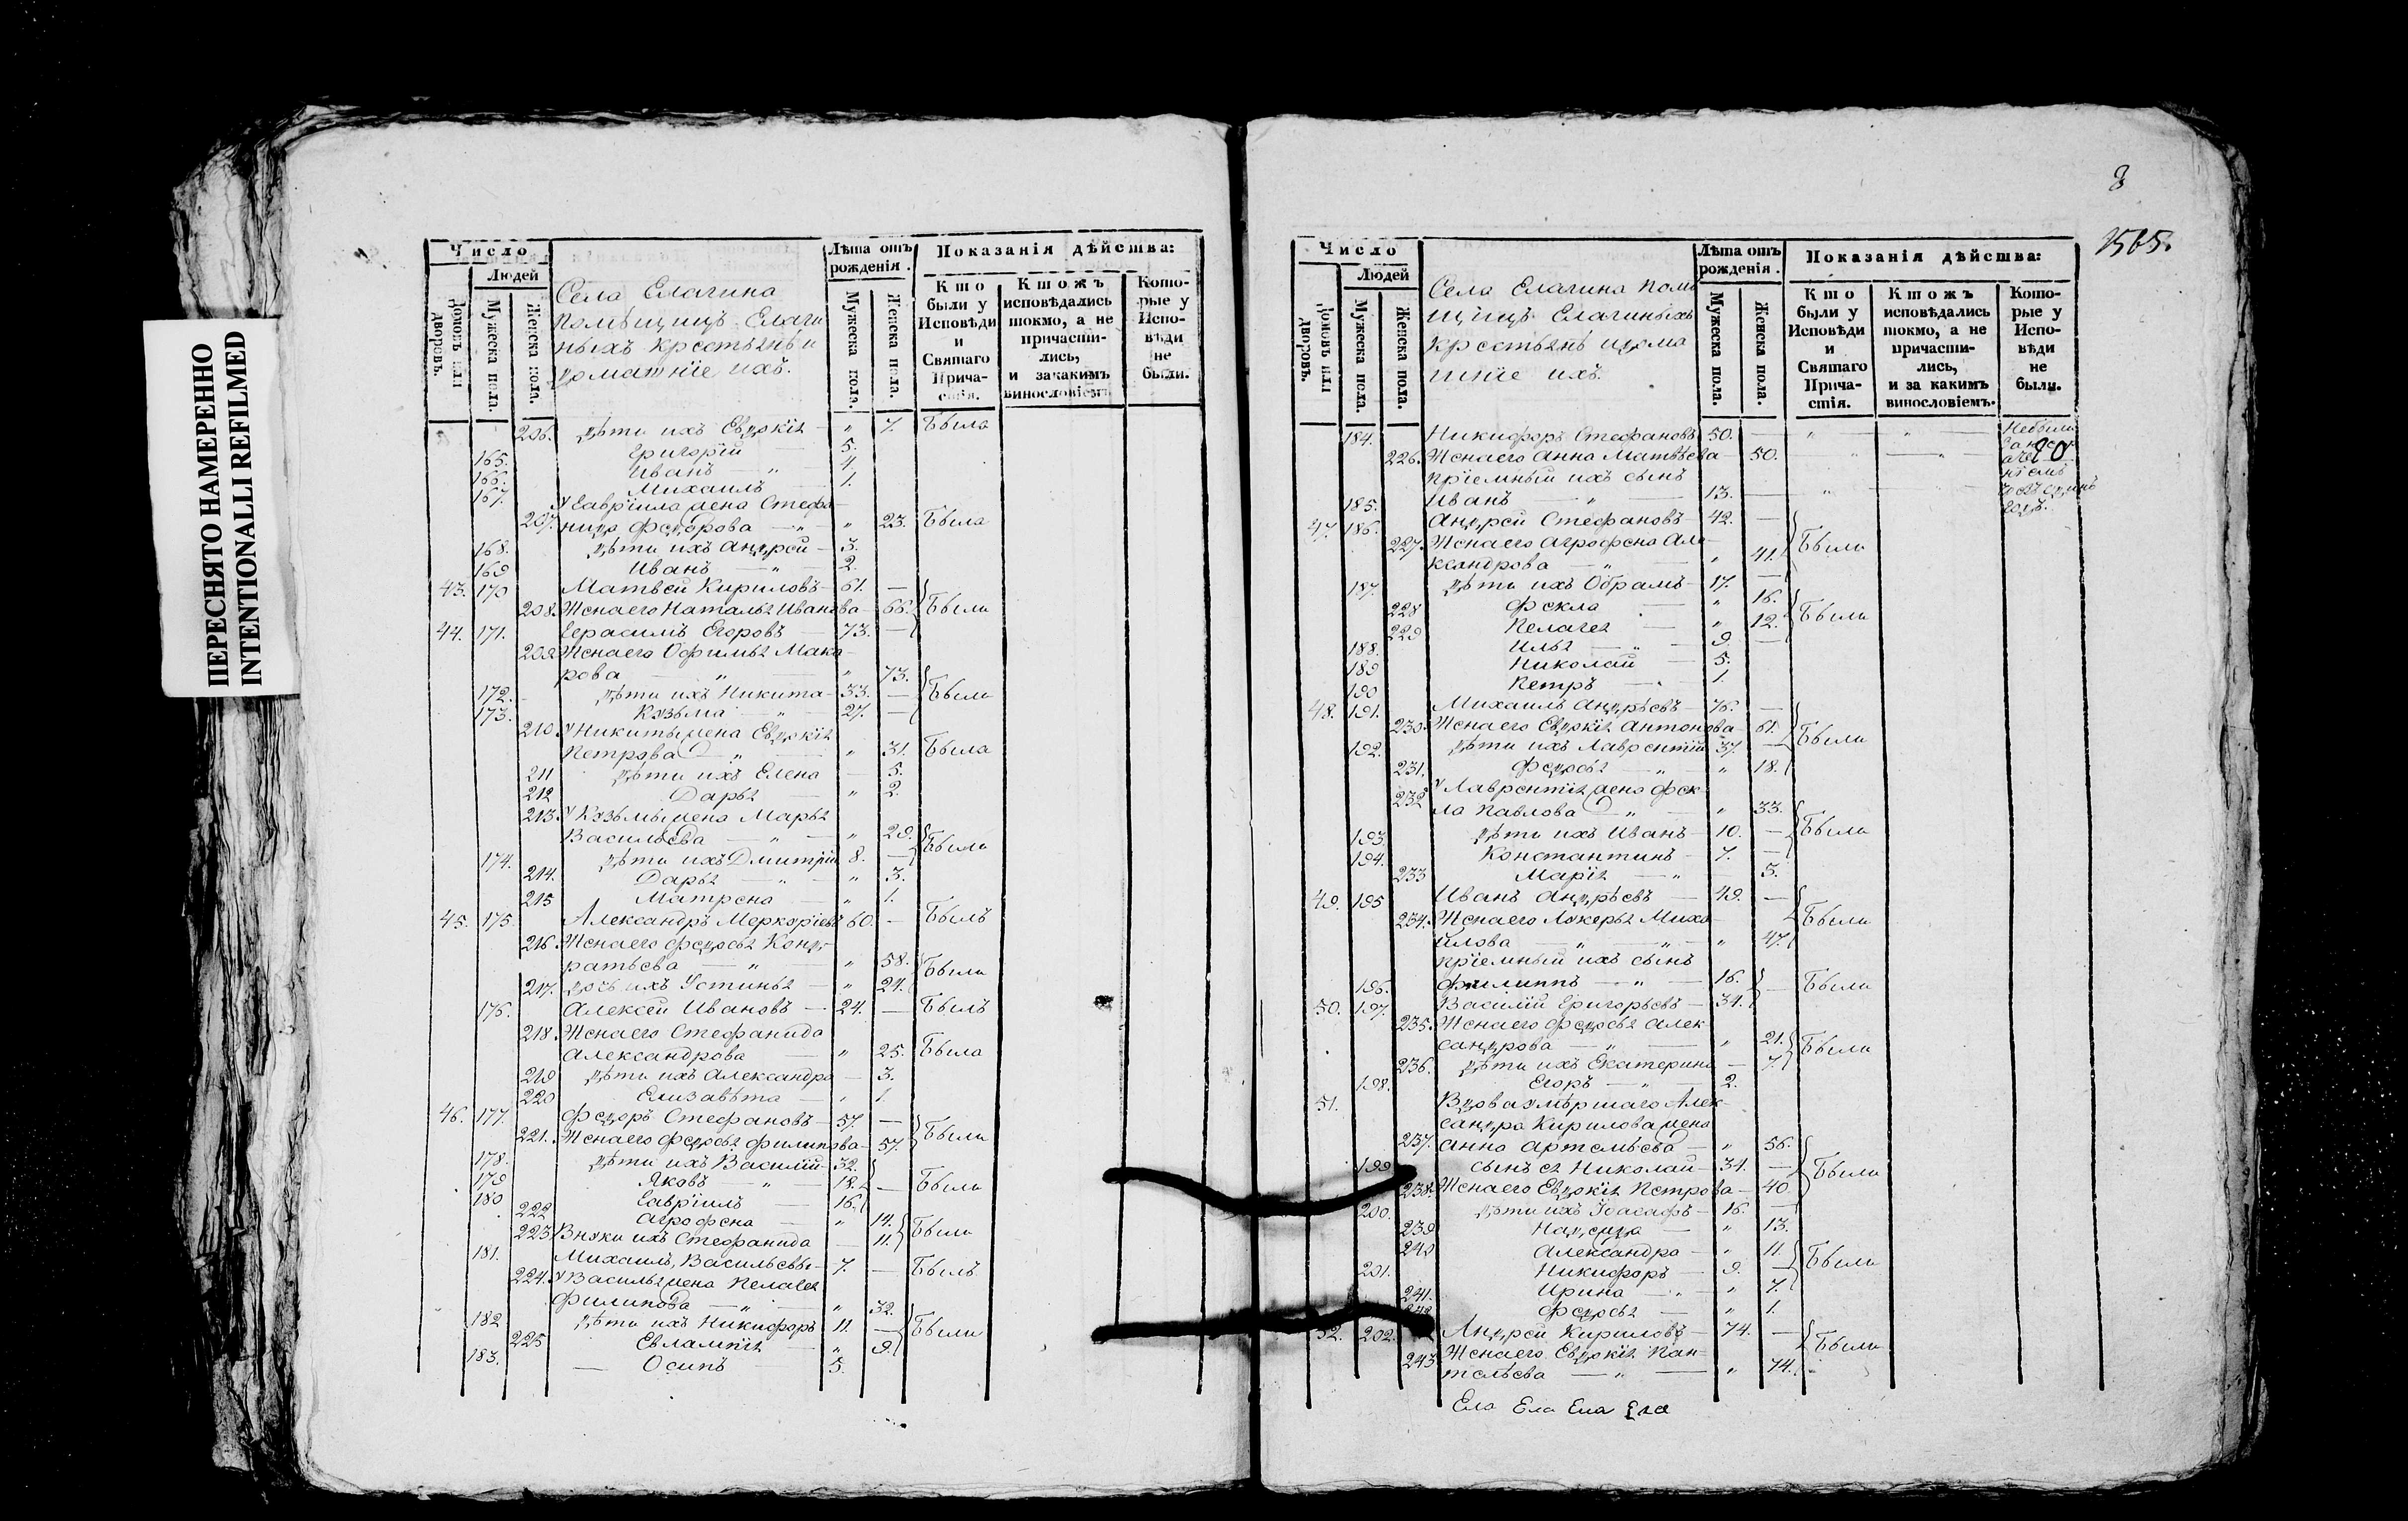 ПЕРЕСНЯТО НАМЕРЕННО
INTENTIONALLI REFILMED
Число
Людей
Домовъ или дворовъ.
Мужеска пола.
Женска пола.
Села Елагина
помѣщицъ Елаги
ныхъ крестьянѣ и
домашніе ихъ.
Лѣта отъ рожденія.
Мужеска пола.
Женска пола.
Показанія дѣйства:
Кто были у Исповѣди и Святаго Причастія.
Ктожъ исповѣдались токмо, а не причастились, и закакимъ винословіемъ
Которые у Исповѣди не были.
206. дѣти ихъ Евдокія — „ 7. Была
165. Григорій — 5.
166. Иванъ „ 4.
167. Михаилъ — 1.
У Гавріила жена Стефа-
207. нида Федорова — „ „ 23. Была
168. дѣти ихъ Андрей — 3.
169 Иванъ — „ 2.
43. 170 Матвей Кириловъ — 61. —
208. Жена его Наталья Иванова — 66. Были
44. 171. Герасимъ Егоровъ — 73. —
209. Жена его Офимья Мака-
рова — „ „ 73.
172. дѣти ихъ Никита — 33. — Были
173. Козьма „ 27. —
210. У Никиты жена Евдокія
Петрова — „ „ 31. Была
211 дѣти ихъ Елена — 5.
212 Дарья — „ 2.
213. У Козьмы жена Марья
Васильева — „ „ 29. Были
174. дѣти ихъ Дмитрій 8. —
214. Дарья — „ „ 3.
215 Матрена — „ 1.
45. 175 Александръ Меркурьевъ 60. — Былъ
216. Жена его Федосья Конд-
ратьева — „ „ 58. Были
217. дочь ихъ Устинья — „ 24.
176. Алексей Ивановъ — 24. — Былъ
218. Жена его Стефанида
Александрова — „ 25. Была
219 дѣти ихъ Александра — 3.
220 Елизавѣта — „ 1
46. 177. Федоръ Стефановъ — 57. —
221. Жена его Федосья Филипова — 57. Были
178. дѣти ихъ Василій — 32.
179 Яковъ — „ 18. — Были
180 Гавріилъ — 16.
222 Агрофена — „ 14.
223 Внуки ихъ Стефанида — 11. Были
181. Михаилъ Васильевы — 7. — Былъ
224. У Василья жена Пелагея
Филипова — „ „ 32.
182 дѣти ихъ Никифоръ 11. — Были
225 Евлампія — „ 9.
183. — Осипъ 5.
8
1565.
Число
Людей
Домовъ или дворовъ.
Мужеска пола.
Женска пола.
Села Елагина помѣ
щицъ Елагиныхъ
крестьянѣ и дома
шніе ихъ.
Лѣта отъ рожденія.
Мужеска пола.
Женска пола.
Показанія дѣйства:
Кто были у Исповѣди и Святаго Причастія.
Ктожъ исповѣдались токмо, а не причастились, и за какимъ винословіемъ.
Которые у Исповѣди не были.
184. Никифоръ Стефановъ 50. — „ — „ — Небыли
226. Жена его Анна Матвѣева 50. — „ — „
пріемный ихъ сынъ
185. Иванъ — „ — 13. — „
47. 186. Андрей Стефановъ 42. —
227. Жена его Агрофена Але-
ксандрова — „ „ 41. Были
187. дѣти ихъ Обрамъ — 17. —
228 Фекла — „ 16.
229 Пелагея — „ 12. Были
188. Илья — „ 9. —
189 Николай — 5.
190 Петръ — 1.
48. 191. Михаилъ Андрѣевъ — 76. —
230. Жена его Евдокія Антонова — 61. Были
192. дѣти ихъ Лаврентій 37. —
231. Федосья — „ „ 18.
232 У Лаврентія жена Фек-
ла Павлова — „ „ 33.
193. дѣти ихъ Иванъ — 10. — Были
194. Константинъ — 7. —
233 Марія — „ 5.
49. 195 Иванъ Андрѣевъ — 49. —
234. Жена его Лукерья Миха- Были
йлова — „ „ 47.
пріемный ихъ сынъ
196. Филиппъ — „ 16. — Были
50. 197. Василій Григорьевъ — 31.
235. Жена его Федосья Алек-
сандрова — „ „ 21. Были
236. дѣти ихъ Екатерина — 7.
198. Егоръ — „ 2.
51. Вдова умершаго Алек-
сандра Кирилова жена
237. Анна Артемьева — „ 56.
199 сынъ ея Николай — 34. — Были
238. Жена его Евдокія Петрова — 40
200. дѣти ихъ Іоасафъ — 16. —
239 Надежда — „ 13.
240 Александра — „ 11.
201. Никифоръ — 9. — Были
241. Ирина — „ „ 7.
242 Федосья — „ 1.
52. 202. Андрей Кириловъ — 74. — Были
243 Жена его Евдокія Пан-
телѣева — „ — „ 74.
Ела Ела Ела Ела